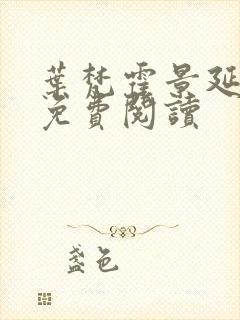 葉梵霆景延
免費閱讀
盞色